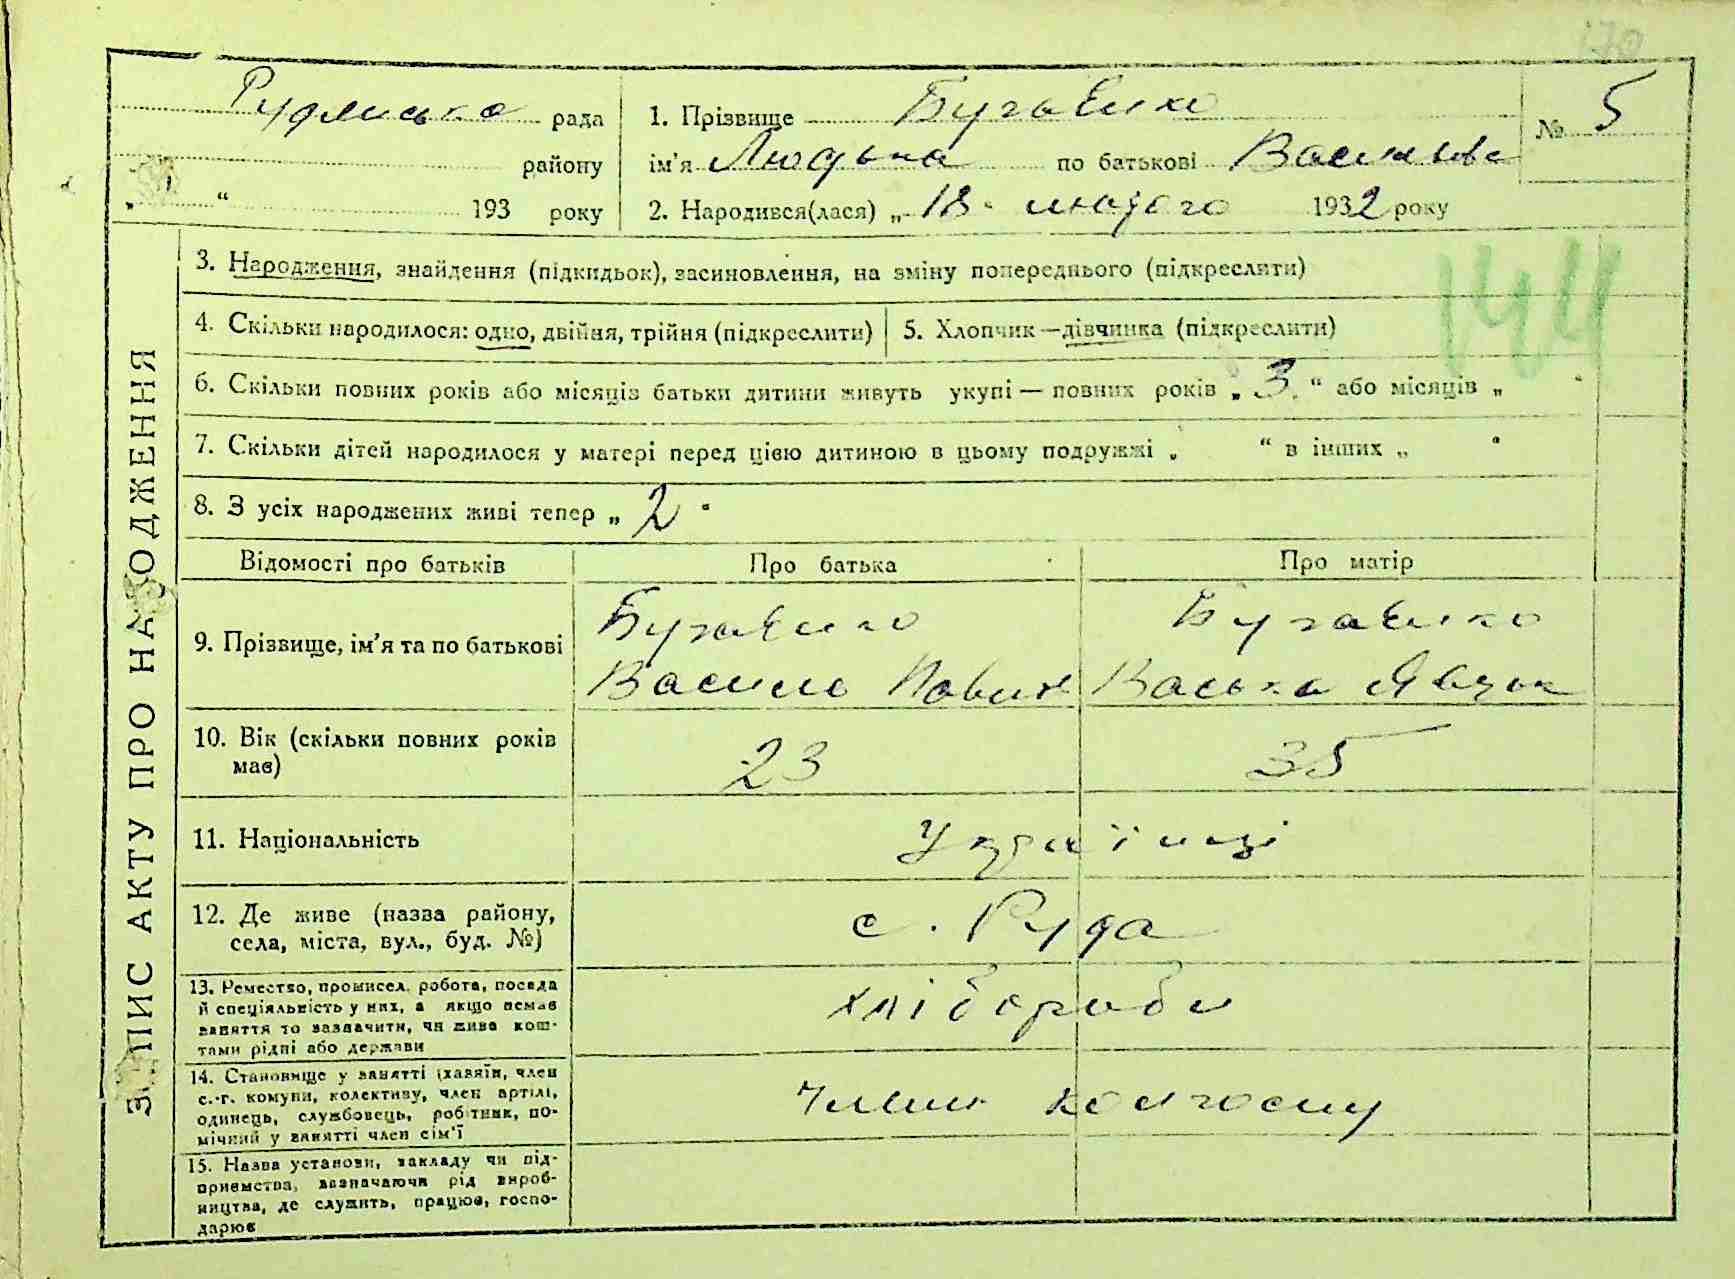 170
рада
району
„ “ 193 року
1. Прізвище
ім'я Людька по батькові
2. Народився(лася) „18. лютого 1932 року
№ 5
ЗАПИС АКТУ ПРО НАРОДЖЕННЯ
3. Народження, знайдення (підкидьок), засиновлення, на зміну попереднього (підкреслити)
4. Скільки народилося: одно, двійня, трійня (підкреслити)
5. Хлопчик — дівчинка (підкреслити)
144
6. Скільки повних років або місяців батьки дитини живуть укупі — повних років „3“ або місяців „ “
7. Скільки дітей народилося у матері перед цією дитиною в цьому подружжі „ “ в інших „ “
8. З усіх народжених живі тепер „2“
Відомості про батьків
Про батька
Про матір
9. Прізвище, ім'я та по батькові
Василь
Васька
10. Вік (скільки повних років
має)
23
35
11. Національність
Українці
12. Де живе (назва району,
села, міста, вул., буд. №)
с. Руда
13. Ремество, промисел, робота, посада
й спеціяльність у них, а якщо немає
заняття то зазначити, чи живе кош-
тами рідні або держави
хлібороби
14. Становище у занятті (хазяїн, член
с.-г. комуни, колективу, член артілі,
одинець, службовець, робітник, по-
мічний у занятті член сім'ї
Члени колгоспу
15. Назва установи, закладу чи під-
приємства, зазначаючи рід вироб-
ництва, де служить, працює, госпо-
дарює